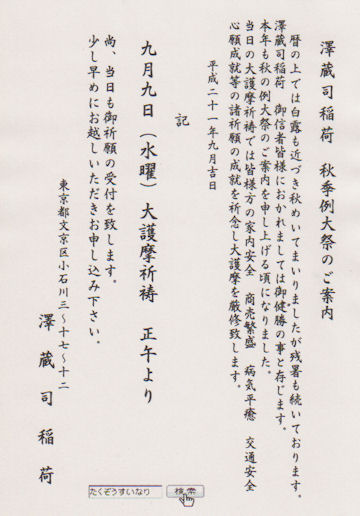 澤蔵司稲荷　秋季例大祭のご案内
暦の上では白露も近づき秋めいてまいりましたが残暑も続いております。
澤蔵司稲荷　御信者皆様におかれましては御健勝の事と存じます。
本年も秋の例大祭のご案内を申し上げる頃になりました。
当日の大護摩祈祷では皆様方の家内安全　商売繁盛　病気平癒　交通安全
心願成就等の諸祈願の成就を祈念し大護摩を厳修致します。
平成二十一年九月吉日
記
九月九日（水曜）大護摩祈祷　正午より
尚、当日も御祈願の受付を致します。
少し早めにお越しいただきお申し込み下さい。
東京都文京区小石川三～十七～十二
澤蔵司稲荷
たくぞうすいなり 検索